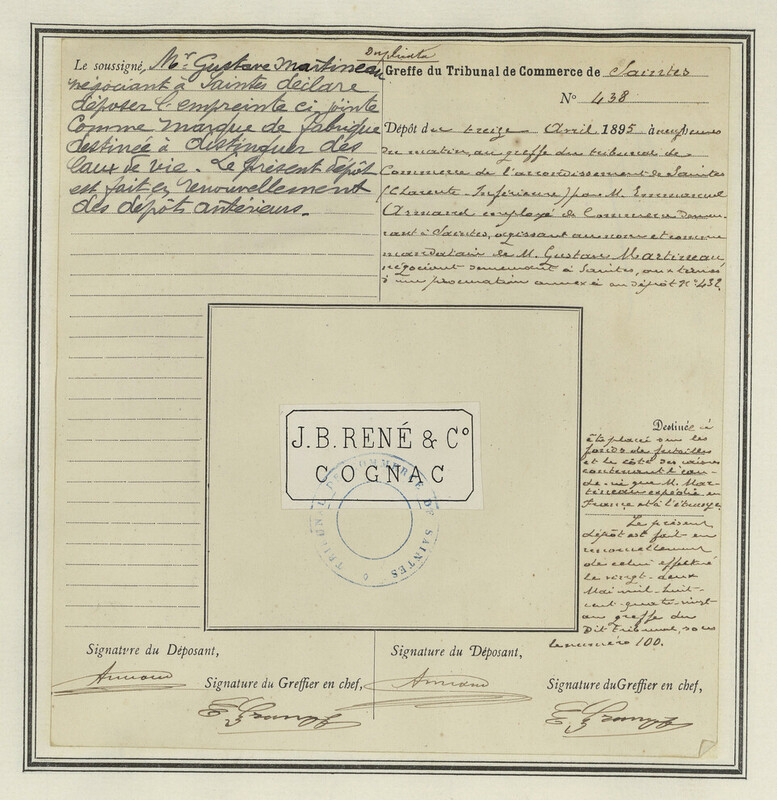 Duplicata
Le soussigné, Mr. Gustave Martineau
négociant à Saintes déclare
déposer l'empreinte ci jointe
comme marque de fabrique
destinée à distinguer des
eaux de vie. Le présent dépôt
est fait en renouvellement
des dépôts antérieurs.
Greffe du Tribunal de Commerce de Saintes
No 438
Dépôt du treize Avril 1895 à neuf heures
du matin, au greffe du tribunal de
Commerce de l'arrondissement de Saintes
(Charente-Inférieure) par M. Emmanuel
Armand employé de Commerce demeu-
rant à Saintes, agissant au nom et comme
mandataire de M. Gustave Martineau,
négociant demeurant à Saintes, aux termes
d'une procuration annexée au dépôt No 432.
J.B. RENÉ & Co
COGNAC
TRIBUNAL DE COMMERCE DE SAINTES
Destinée à
être placée sur les
fonds de futailles
et le côté des caisses
contenant l'eau-
de-vie que M. Mar-
tineau expédie en
France et à l'étranger.
Le présent
dépôt est fait en
renouvellement
de celui effectué
le vingt-deux
Mai mil-huit-
cent-quatre-vingt
au greffe du
dit Tribunal, sous
le numéro 100.
Signature du Déposant,
Armand
Signature du Greffier en chef,
Signature du Déposant,
Armand
Signature du Greffier en chef,